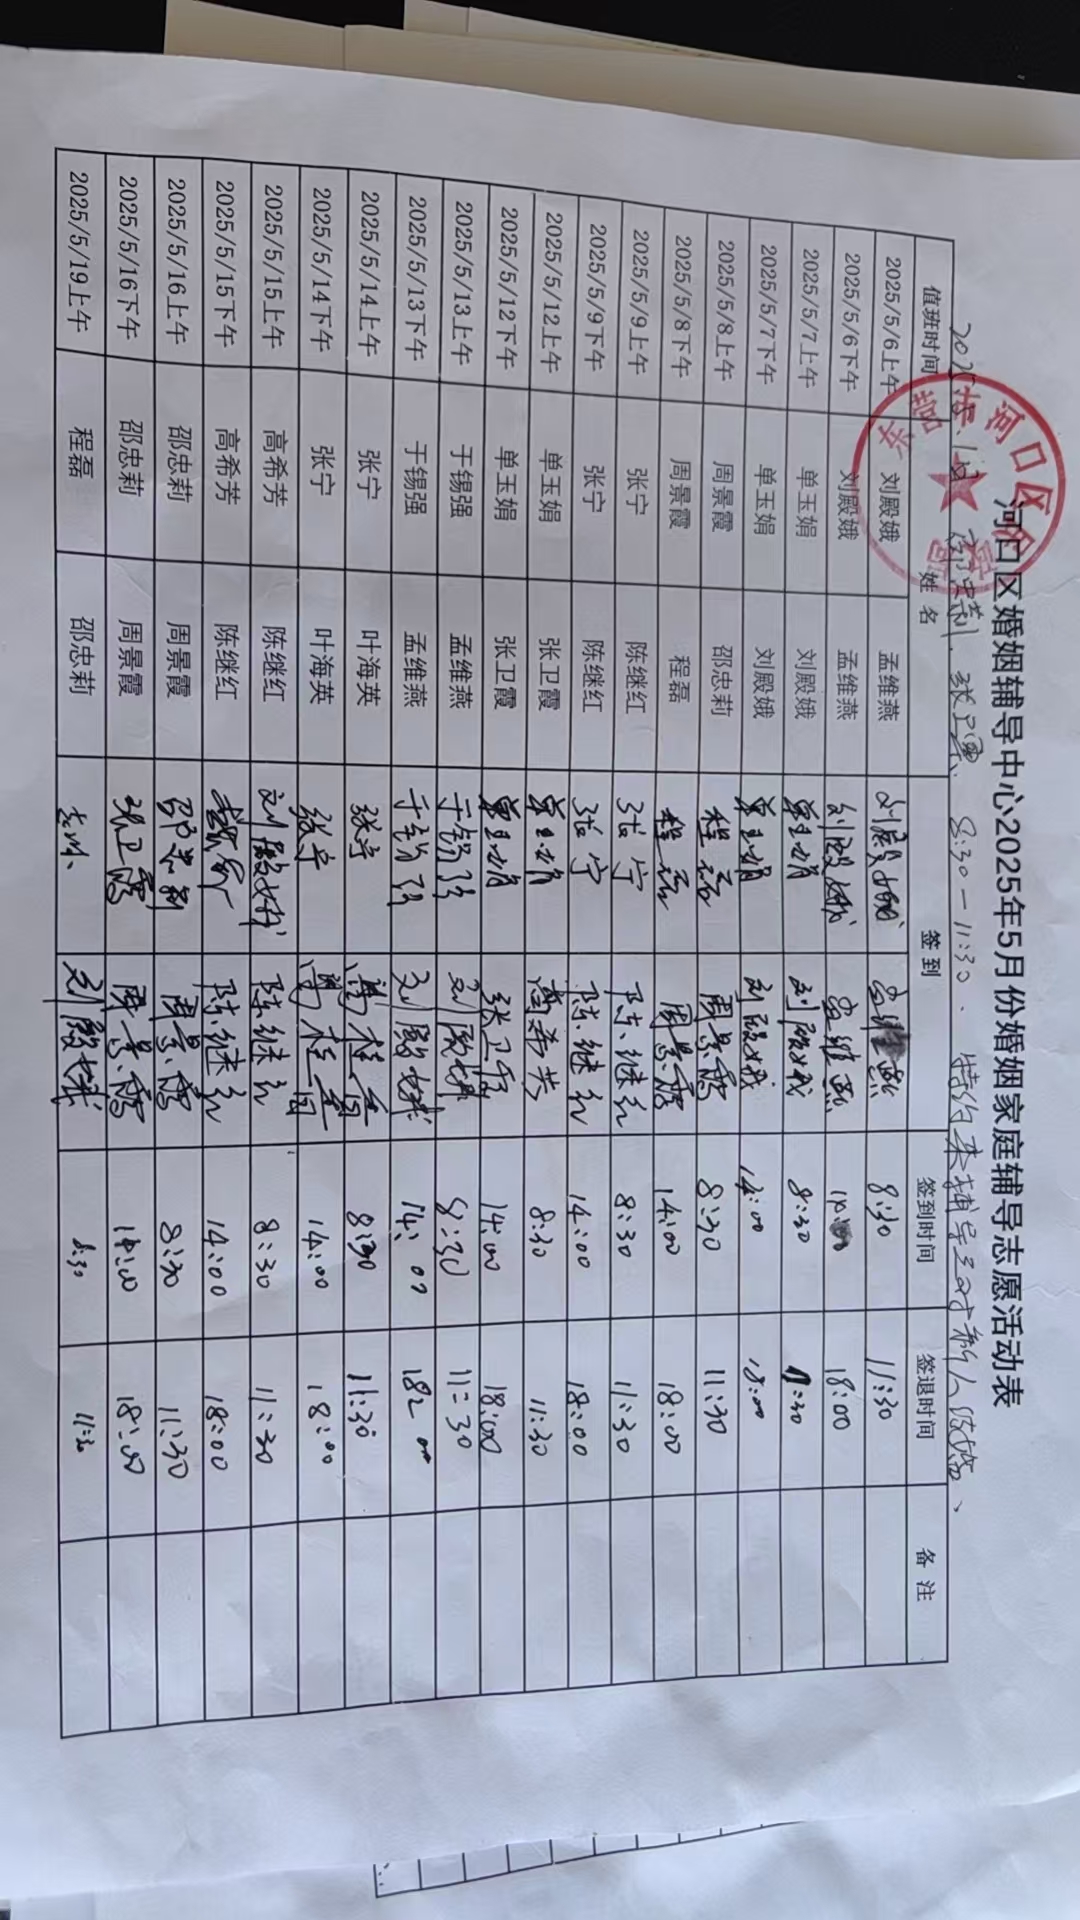 河口区婚姻辅导中心2025年5月份婚姻家庭辅导志愿活动表
邵忠莉、张卫霞、8:30-11:30、特约来辅导 对新人结婚、
东营市河口区
值班时间 姓名 签到 签到时间 签退时间 备注
2025/5/6上午 刘殿娥 孟维燕 刘殿娥 孟维燕 8:30 11:30
2025/5/6下午 刘殿娥 孟维燕 刘殿娥 孟维燕 18:00
2025/5/7上午 单玉娟 刘殿娥 单玉娟 刘殿娥 8:30 11:30
2025/5/7下午 单玉娟 刘殿娥 单玉娟 刘殿娥 14:00 18:00
2025/5/8上午 周景霞 邵忠莉 程磊 周景霞 8:30 11:30
2025/5/8下午 周景霞 程磊 程磊 周景霞 14:00 18:00
2025/5/9上午 张宁 陈继红 张宁 陈继红 8:30 11:30
2025/5/9下午 张宁 陈继红 张宁 陈继红 14:00 18:00
2025/5/12上午 单玉娟 张卫霞 单玉娟 高希芳 8:30 11:30
2025/5/12下午 单玉娟 张卫霞 单玉娟 张卫霞 14:00 18:00
2025/5/13上午 于锡强 孟维燕 于锡强 刘殿娥 8:30 11:30
2025/5/13下午 于锡强 孟维燕 于锡强 刘殿娥 14:00 18:00
2025/5/14上午 张宁 叶海英 张宁 8:30 11:30
2025/5/14下午 张宁 叶海英 张宁 14:00 18:00
2025/5/15上午 高希芳 陈继红 刘殿娥 陈继红 8:30 11:30
2025/5/15下午 高希芳 陈继红 陈继红 14:00 18:00
2025/5/16上午 邵忠莉 周景霞 邵忠莉 周景霞 8:30 11:30
2025/5/16下午 邵忠莉 周景霞 张卫霞 周景霞 14:00 18:00
2025/5/19上午 程磊 邵忠莉 刘殿娥 8:30 11:30